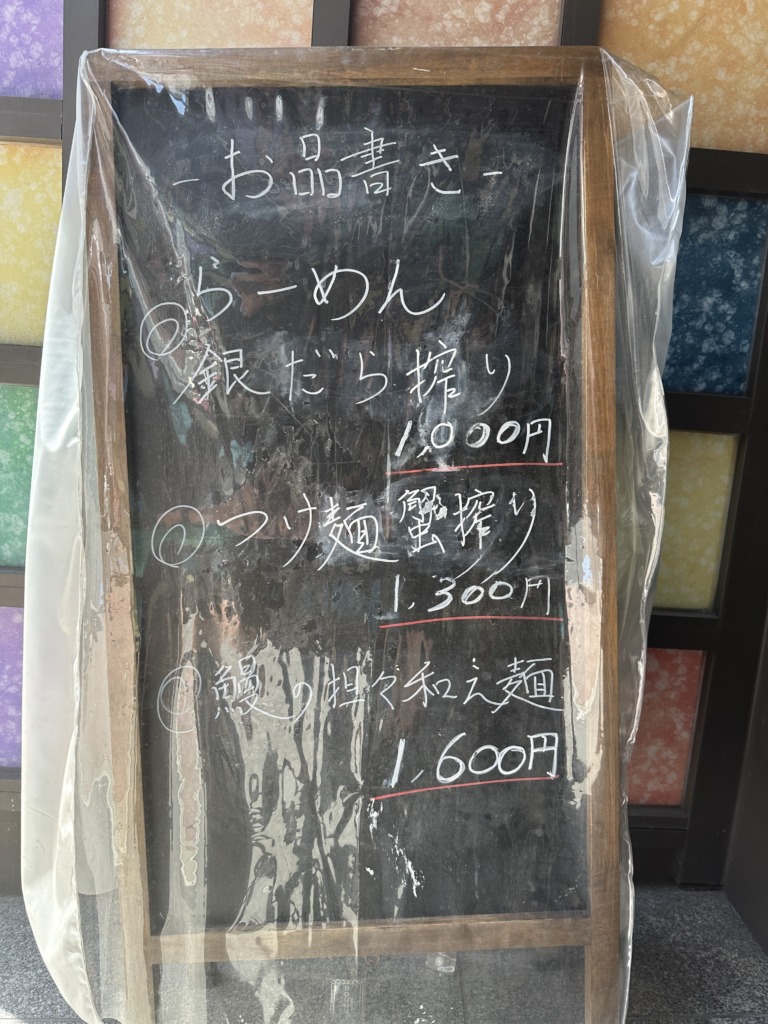 -お品書き-
○らーめん
銀だら搾り
1,000円
○つけ麺 蟹搾り
1,300円
○鰻の担々和え麺
1,600円